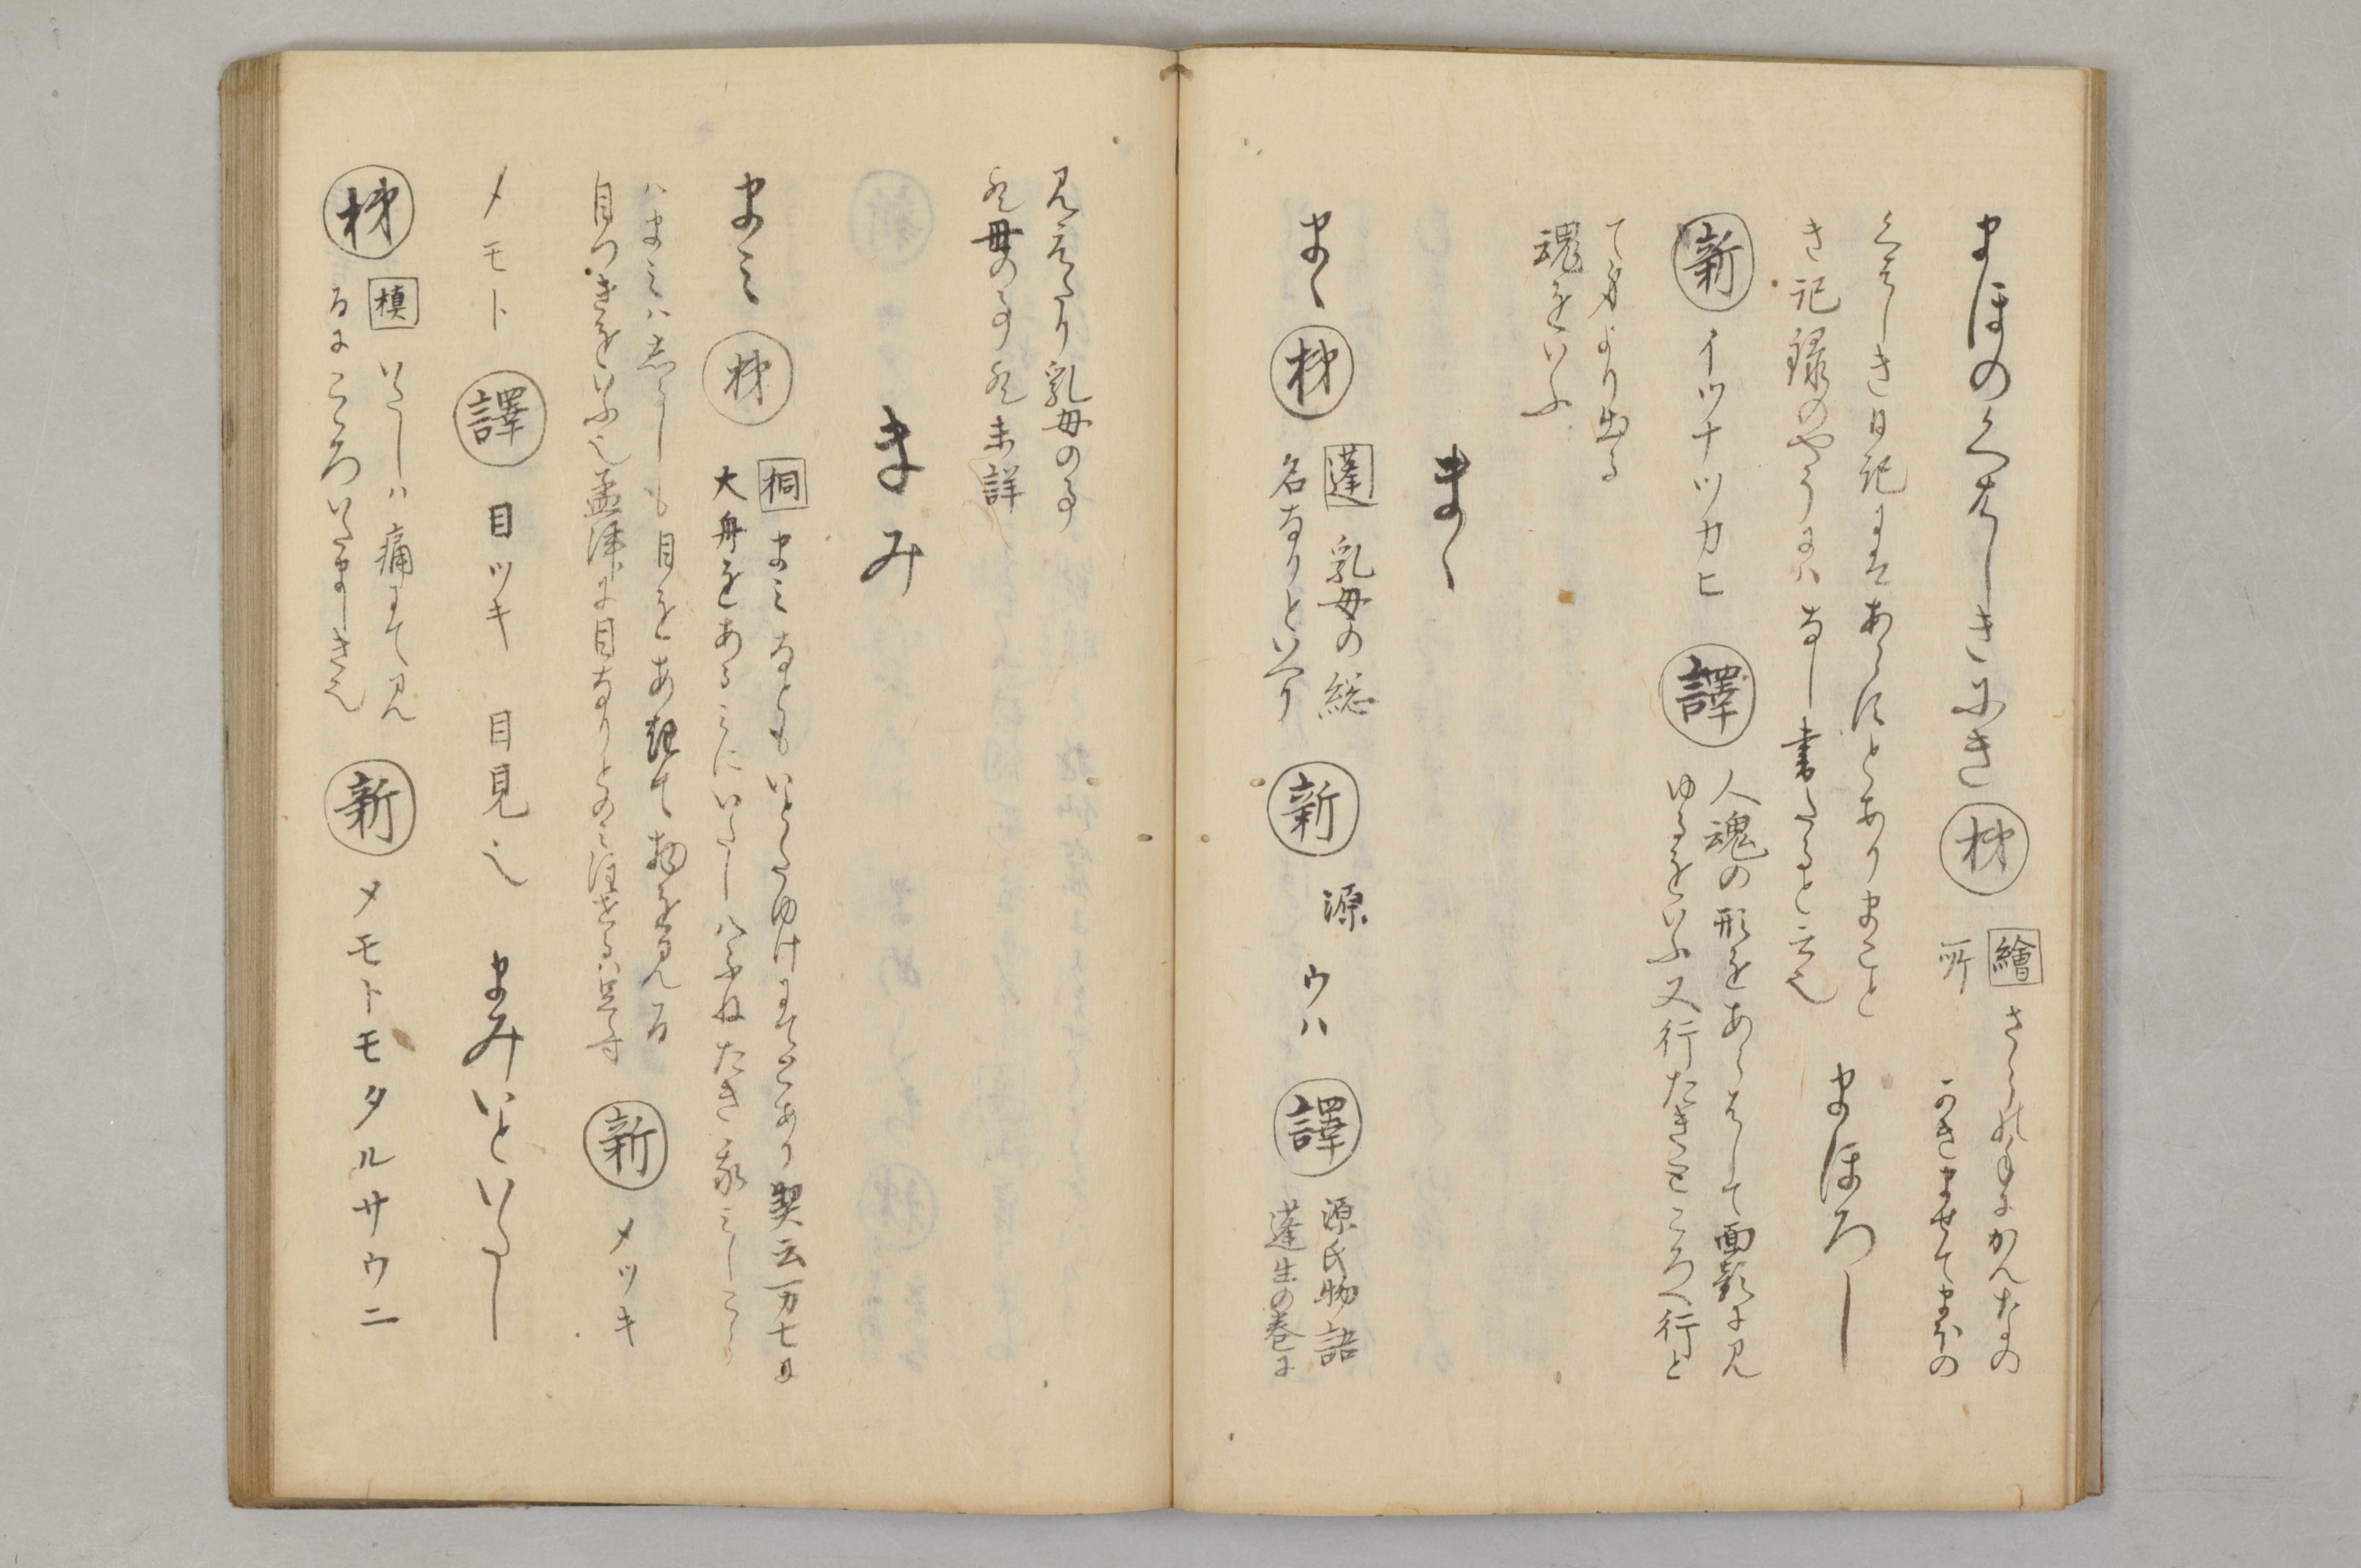 まほのくはしきにき 梯 繪 さうの手にかんなの
所〻 かきませてまほの
くはしき日記にはあらすとありまこと
き記録のやうにハなし書たると云也 まほろし
新 イツナツカヒ 譯 人魂の形をあらはして面影に見
ゆるをいふ又行たきところへ行と
て身より出る
魂をいふ
まゝ
まゝ 梯 蓬 乳母の総
名なりといへり 新 源 ウハ 譯 源氏物語
蓬生の巻に
見えたり乳母の事
継母の事継未詳
まみ
まミ 梯 桐 まミなともいとたゆけにてとあり契云万七に
大舟をあるミにいたし八ふねたき我ミしこら
ハまミハしるしも目をあけて物を見る
目つきをいふ也孟津に目なりとのミ注せるハ足す 新 メツキ
メモト 譯 目ツキ 目見也 まみいといたし
梯 槙 いたしハ痛にて見
るにこころいたましき也 新 メモトモタルサウニ